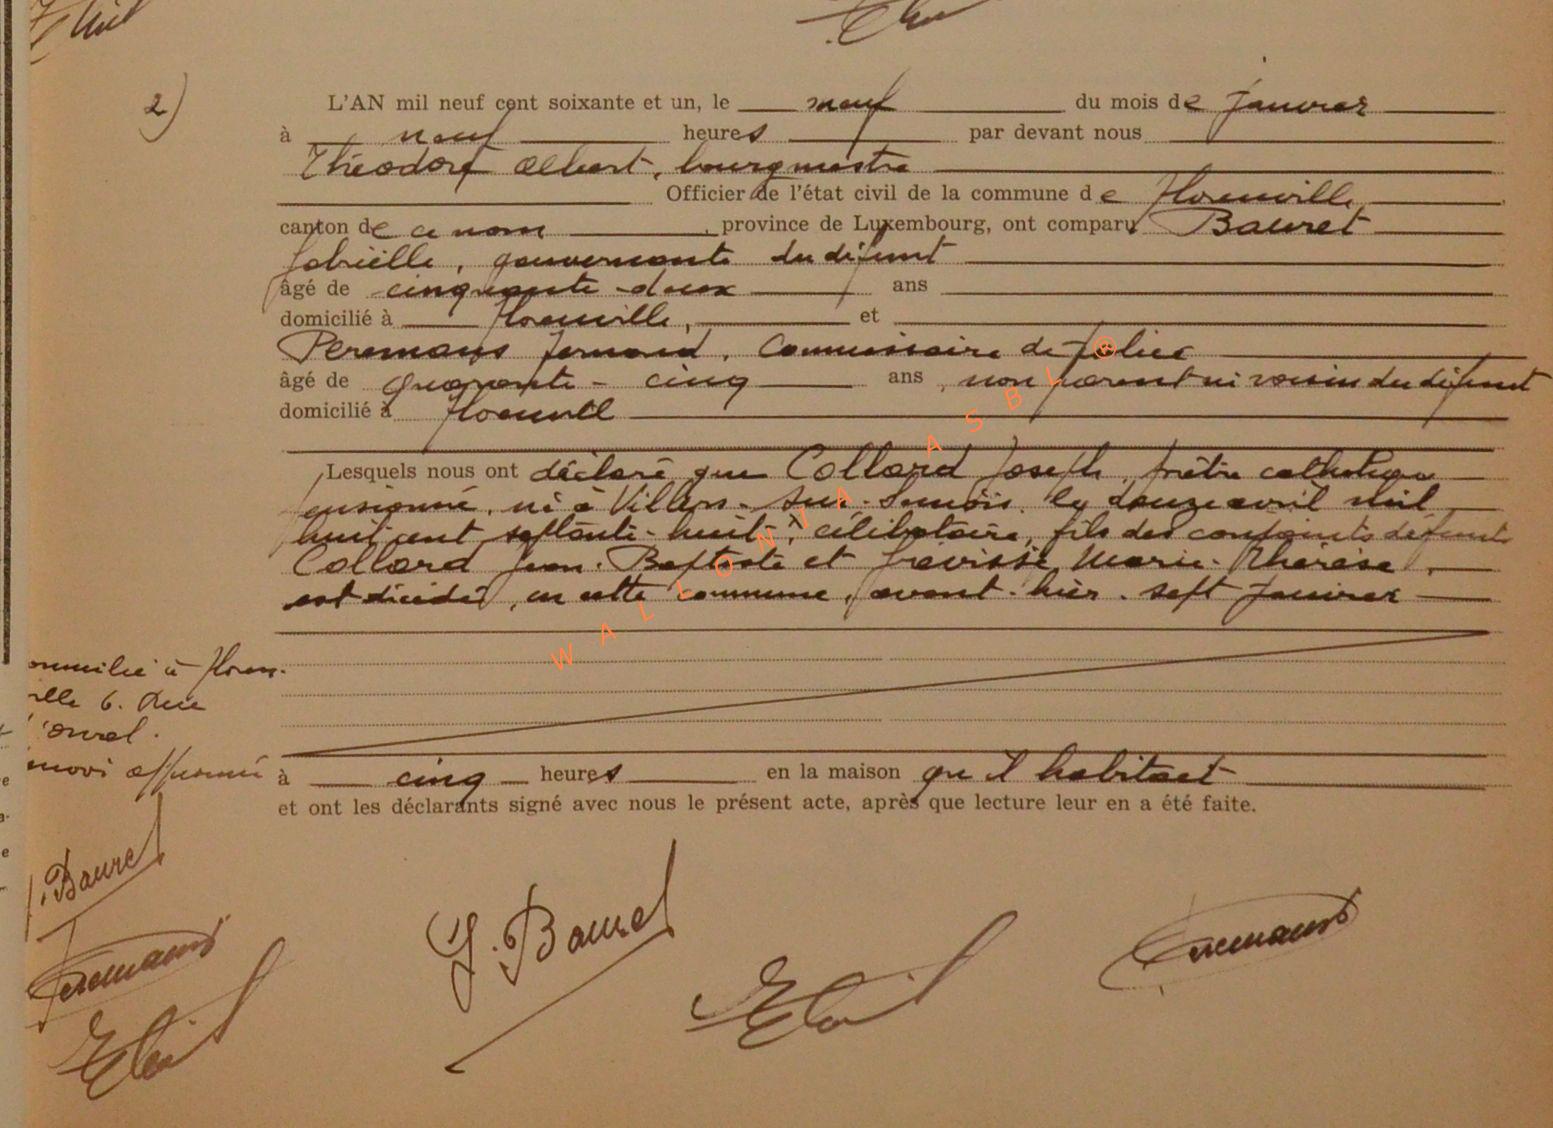 2)
L'AN mil neuf cent soixante et un, le neuf du mois de janvier
à neuf heures par devant nous
Théodore Albert, bourgmestre
Officier de l'état civil de la commune de Florenville,
canton de ce nom, province de Luxembourg, ont comparu Bauret
gouvernante du défunt
âgé de cinquante-deux ans
domicilié à Florenville, et
Peremans Fernand, Commissaire de police
âgé de quarante-cinq ans, non parent ni voisin du défunt
domicilié à Florenville
Lesquels nous ont déclaré que Collard Joseph, prêtre catholique
pensionné, né à Villers-sur-Semois, le douze avril mil
huit cent septante-huit, célibataire, fils des conjoints défunts
Collard Jean-Baptiste et Frévisse Marie-Thérèse,
est décédé, en cette commune, avant-hier, sept janvier
omicilié à Floren-
ville 6. Rue
à cinq heures en la maison qu'il habitait
et ont les déclarants signé avec nous le présent acte, après que lecture leur en a été faite.
Bauret
G. Bauret
Peremans
Peremans
WALLONIA ASBL ®